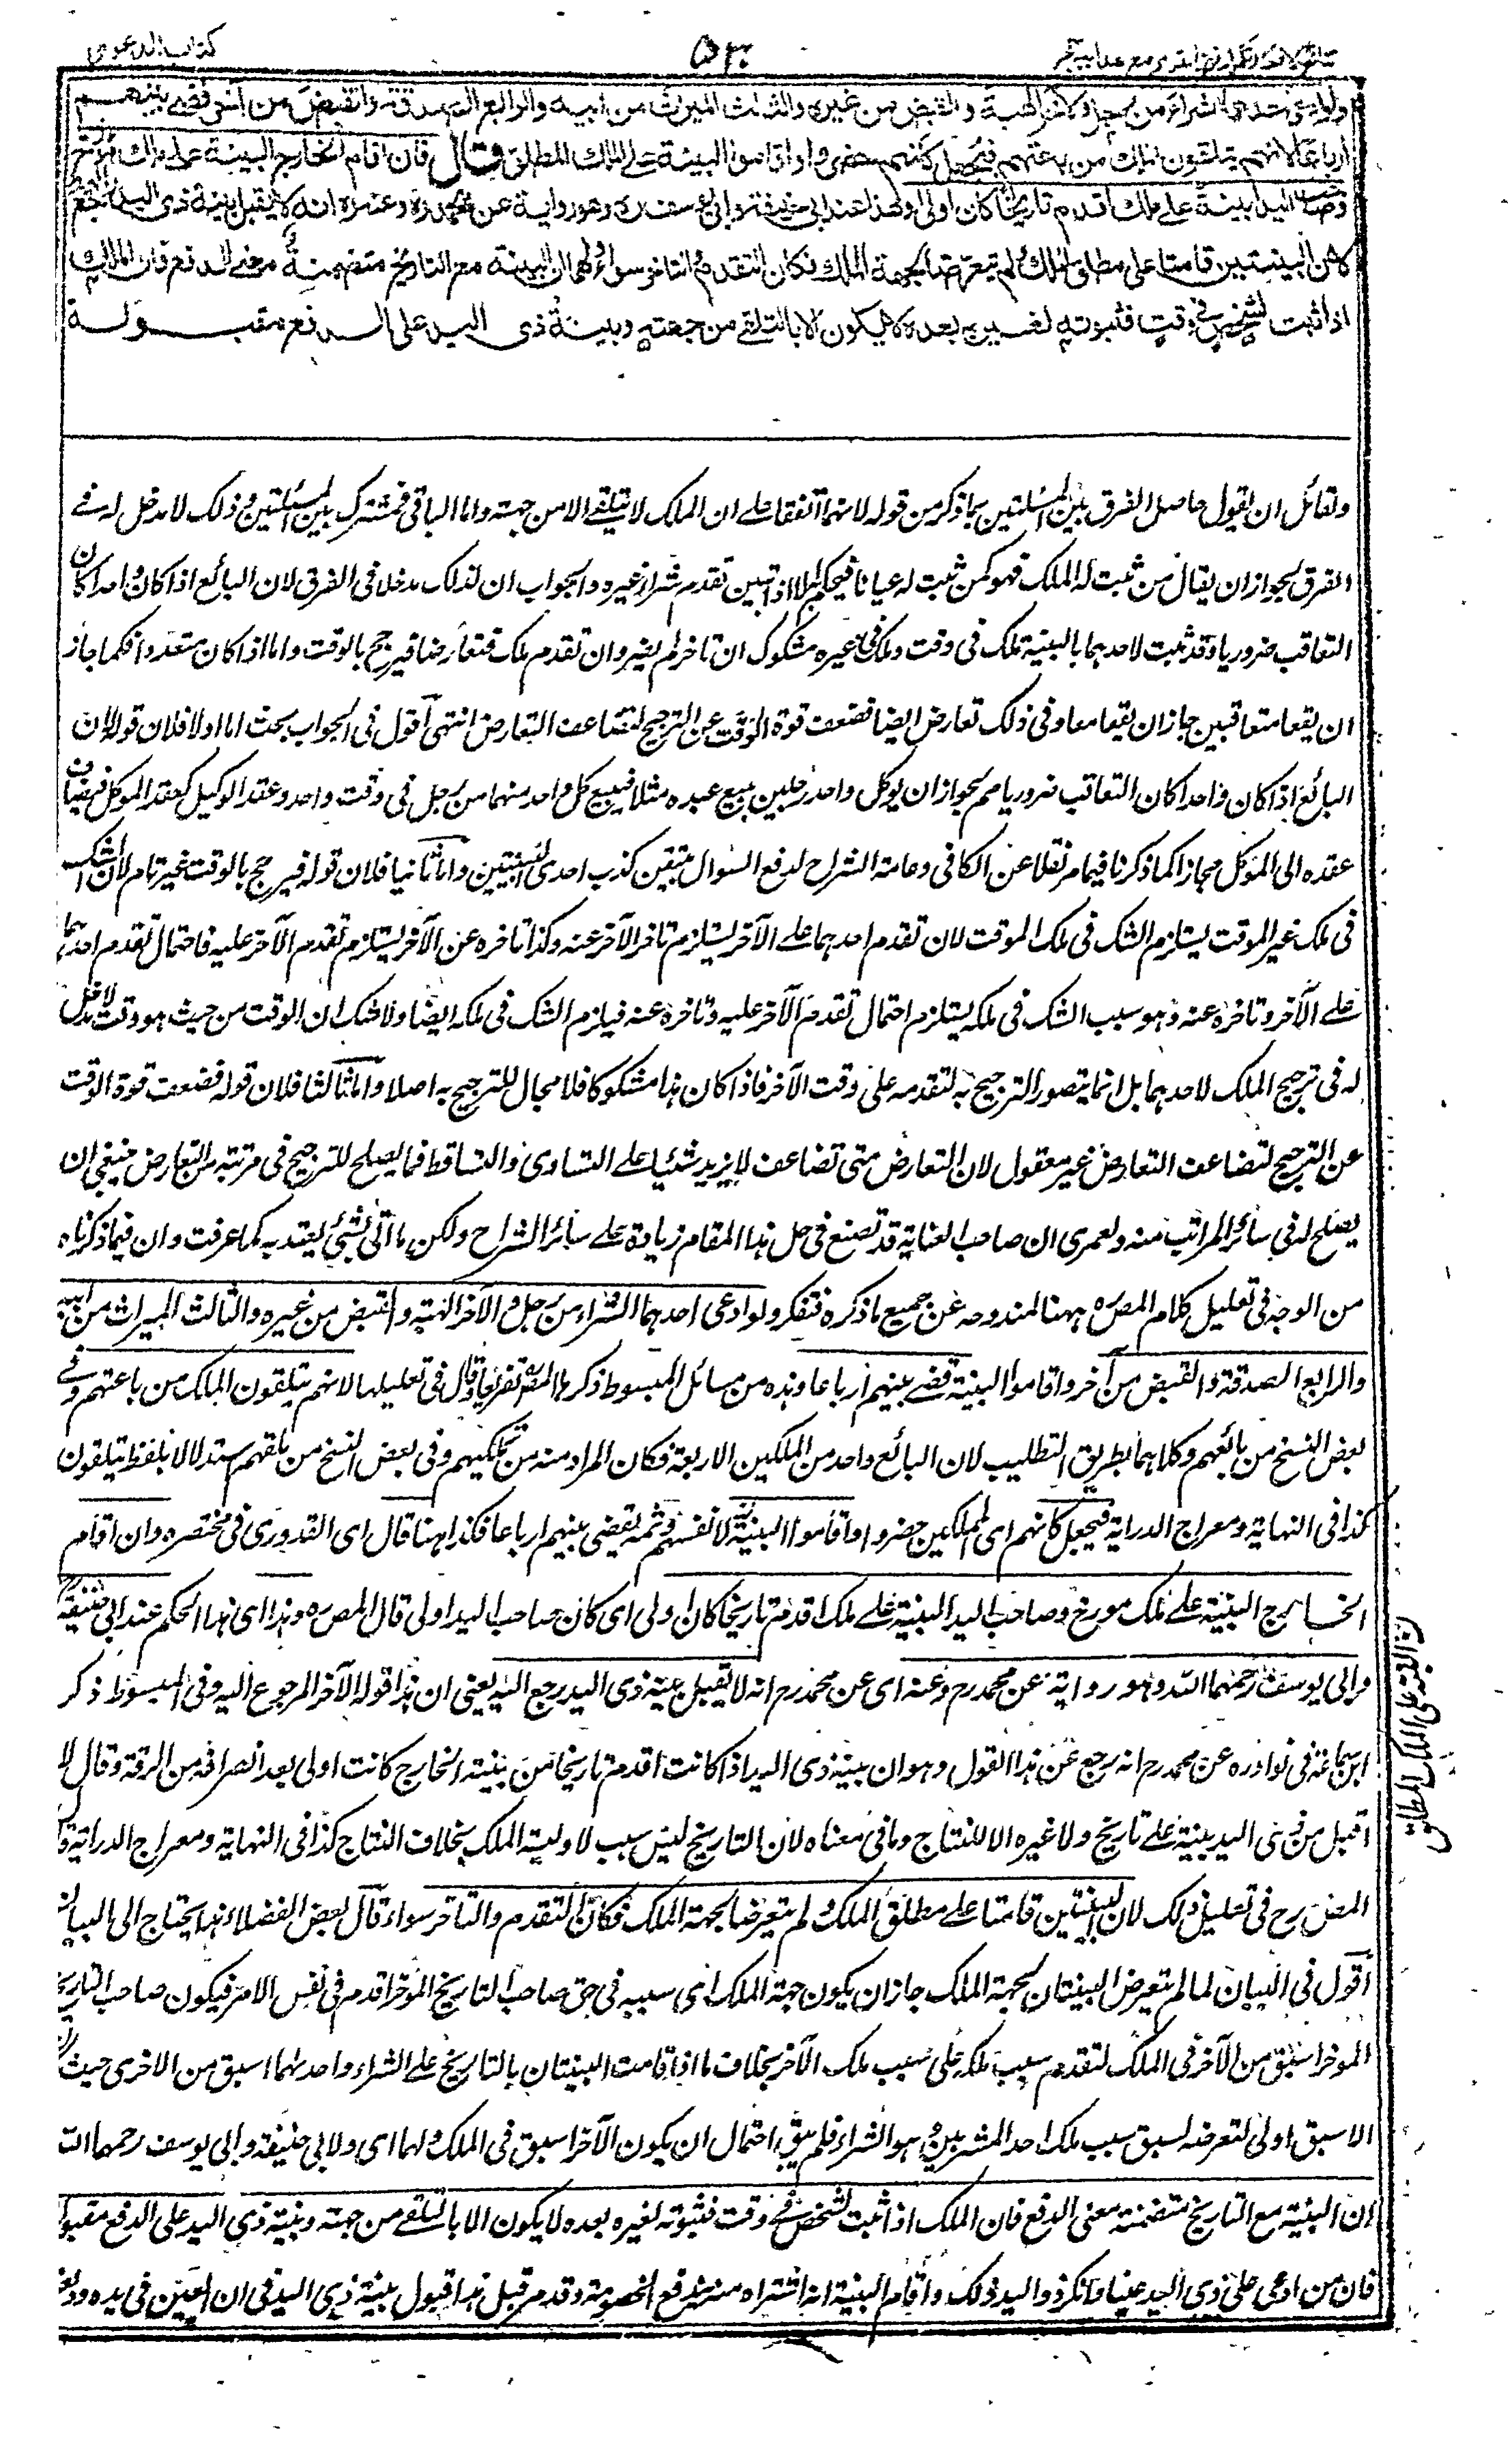 كتاب الدعوى
۵۳
ولو ادعى احدهما الشراء من رجل والآخر الهبة والقبض من غيره والثالث الميراث من ابيه والرابع الصدقة والقبض من آخر قضى بينهم
ارباعا لانهم يتلقون الملك من باعتهم فيجعل كانهم حضروا واقاموا البينة على الملك المطلق وقال فان اقام الخارج البينة على ملك مؤرخ
وصاحب اليد البينة على ملك اقدم تاريخا كان اولى وهذا عند ابى حنيفة وابى يوسف ره وهو رواية عن محمد ره وعنه انه لا يقبل بينة ذى اليد رجع
لان البينتين قامتا على مطلق الملك ولم تتعرضا لجهة الملك فكان التقدم والتاخر سواء ولهما ان البينة مع التاريخ متضمنة معنى الدفع فان الملك
اذا ثبت لشخص فى وقت فثبوته لغيره بعده لا يكون الا بالتلقى من جهته وبينة ذى اليد على الدفع مقبولة
ولقائل ان يقول حاصل الفرق بين المسئلتين بما ذكر من قوله لانهما اتفقا على ان الملك لا يتلقى الا من جهته واما الباقى فمشترك بين المسئلتين وذلك لا مدخل له فى
الفرق لجواز ان يقال من ثبت له الملك فهو كمن ثبت له عيانا فيحكم به الا اذا تبين تقدم شراء غيره والجواب ان لذلك مدخلا فى الفرق لان البائع اذا كان واحدا كان
التعاقب ضروريا وقد ثبت لاحدهما بالبينة ملك فى وقت وملك غيره مشكوك ان تاخر لم يضره وان تقدم ملك فتعارضا فيرجح بالوقت واما اذا كان متعددا فكما جاز
ان يقعا متعاقبين جاز ان يقعا معا وفى ذلك تعارض ايضا فضعف قوة الوقت عن الترجيح لتضاعف التعارض انتهى اقول فى الجواب بحث اما اولا فلان قوله ان
البائع اذا كان واحدا كان التعاقب ضروريا مم لجواز ان يوكل واحد رجلين ببيع عبده مثلا فيبيع كل واحد منهما من رجل فى وقت واحد وعقد الوكيل كعقد الموكل فيضاف
عقده الى الموكل مجازا كما ذكرنا فيما مر نقلا عن الكافى وعامة الشراح لدفع السوال بتيقن كذب احدى البينتين واما ثانيا فلان قوله فيرجح بالوقت غير تام لان الشك
فى ملك غير الموقت يستلزم الشك فى ملك الموقت لان تقدم احدهما على الآخر يستلزم تاخر الآخر عنه وكذا تاخره عن الآخر يستلزم تقدم الآخر عليه فاحتمال تقدم احدهما
على الآخر وتاخره عنه وهو سبب الشك فى ملكه يستلزم احتمال تقدم الآخر عليه وتاخره عنه فيلزم الشك فى ملكه ايضا ولا شك ان الوقت من حيث هو وقت لا مدخل
له فى ترجيح الملك لاحدهما بل انما يتصور الترجيح به لتقدمه على وقت الآخر فاذا كان هذا مشكوكا فلا مجال للترجيح به اصلا واما ثالثا فلان قوله فضعف قوة الوقت
عن الترجيح لتضاعف التعارض غير معقول لان التعارض متى تضاعف لا يزيد شيئا على التساوى والتساقط فما يصلح للترجيح فى مرتبة من التعارض ينبغى ان
يصلح له فى سائر المراتب منه ولعمرى ان صاحب العناية قد تصنع فى حل هذا المقام زيادة على سائر الشراح ولكن ما اتى بشئ يعتد به كما عرفت وان فيما ذكرناه
من الوجه فى تعليل كلام المص ره ههنا لمندوحة عن جميع ما ذكره فتفكر ولو ادعى احدهما الشراء من رجل والآخر الهبة والقبض من غيره والثالث الميراث من ابيه
والرابع الصدقة والقبض من آخر واقاموا البينة قضى بينهم ارباعا وهذه من مسائل المبسوط ذكرها المص تفريعا وقال فى تعليلها لانهم يتلقون الملك من باعتهم وفى
بعض النسخ من بائعهم وكلاهما بطريق التغليب لان البائع واحد من الملكين الاربعة فكان المراد منه من مملكيهم وفى بعض النسخ من تلقيهم استدلالا بلفظ يتلقون
كذا فى النهاية ومعراج الدراية فيجعل كانهم اى المملكين حضروا واقاموا البينة لانفسهم وثمه يقضى بينهم ارباعا فكذا ههنا قال اى القدورى فى مختصره وان اقام
الخارج البينة على ملك مورخ وصاحب اليد البينة على ملك اقدم تاريخا كان اولى اى كان صاحب اليد اولى قال المص ره وهذا اى هذا الحكم عند ابى حنيفة
وابى يوسف رحمهما الله وهو رواية عن محمد رح وعنه اى عن محمد رح انه لا تقبل بينة ذى اليد رجع اليه يعنى ان هذا قوله الآخر المرجوع اليه وفى المبسوط ذكر
ابن سماعة فى نوادره عن محمد رح انه رجع عن هذا القول وهو ان بينة ذى اليد اذا كانت اقدم تاريخا من بينة الخارج كانت اولى بعد انصرافه من الرقة وقال لا
اقبل من ذى اليد بينة على تاريخ ولا غيره الا للنتاج وما فى معناه لان التاريخ ليس بسبب لاولية الملك بخلاف النتاج كذا فى النهاية ومعراج الدراية قال
المص رح فى تعليل ذلك لان البينتين قامتا على مطلق الملك ولم تتعرضا لجهة الملك فكان التقدم والتاخر سواء قال بعض الفضلاء هذا يحتاج الى البيان
اقول فى البيان لما لم يتعرض البينتان لجهة الملك جاز ان يكون جهة الملك اى سببه فى حق صاحب التاريخ الموخر اقدم فى نفس الامر فيكون صاحب التاريخ
الموخر اسبق من الآخر فى الملك لتقدم سبب ملكه على سبب ملك الآخر بخلاف ما اذا قامت البينتان بالتاريخ على الشراء واحدهما اسبق من الاخرى حيث كان
الاسبق اولى لتعرضه لسبق سبب ملك احد المشتريين وهو الشراء فلم يبق احتمال ان يكون الآخر اسبق فى الملك ولهما اى ولابى حنيفة وابى يوسف رحمهما الله
ان البينة مع التاريخ متضمنة معنى الدفع فان الملك اذا ثبت لشخص فى وقت فثبوته لغيره بعده لا يكون الا بالتلقى من جهته وبينة ذى اليد على الدفع مقبولة
فان من ادعى على ذى اليد عينا وانكر ذو اليد ذلك واقام البينة انه اشتراه منه تندفع الخصومة وقد مر قبل هذا قبول بينة ذى اليد فى ان العين فى يده وديعة